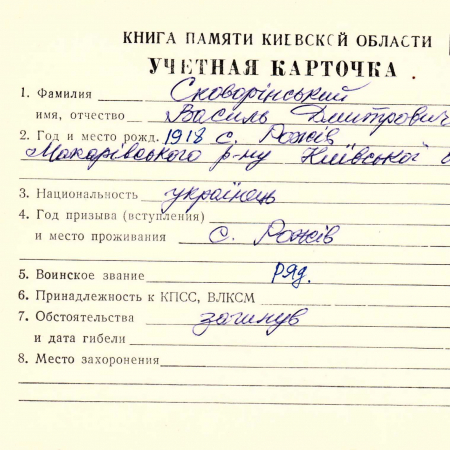 КНИГА ПАМЯТИ КИЕВСКОЙ ОБЛАСТИ
УЧЕТНАЯ КАРТОЧКА
1. Фамилия Скворінський
имя, отчество Василь Дмитрович
2. Год и место рожд. 1918 с. Рожів
Макарівського р-ну Київської
3. Национальность українець
4. Год призыва (вступления)
и место проживания с. Рожів
5. Воинское звание ряд.
6. Принадлежность к КПСС, ВЛКСМ
7. Обстоятельства загинув
и дата гибели
8. Место захоронения